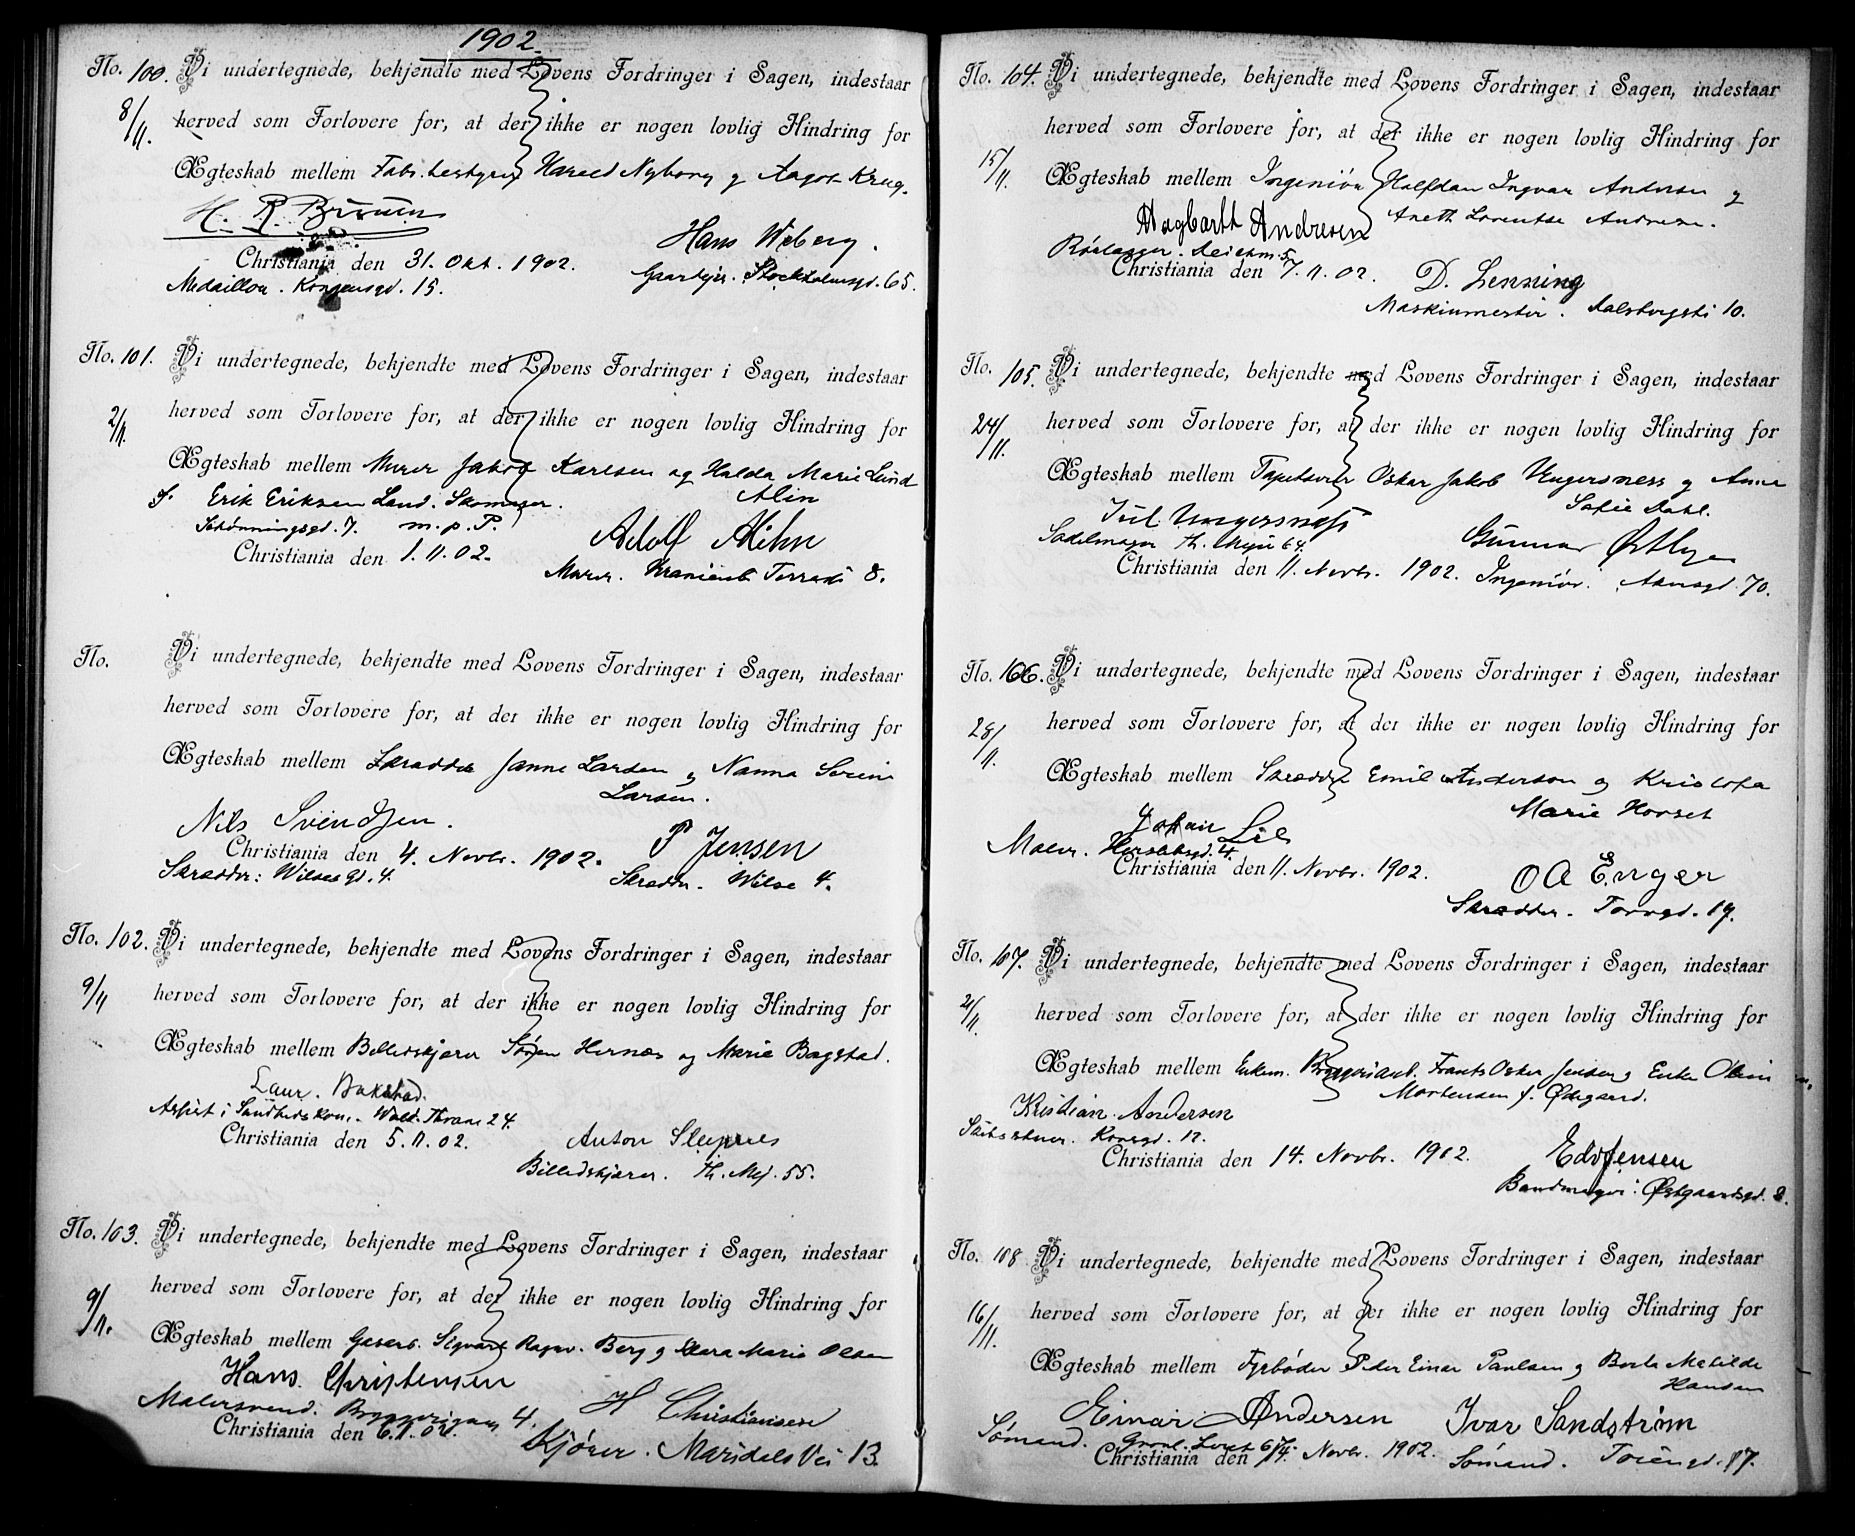 1902.
No. 100. Vi undertegnede, bekjendte med Lovens Fordringer i Sagen, indestaar
8/11. herved som Forlovere for, at der ikke er nogen lovlig Hindring for
Ægteskab mellem Fabr. bestyrer Harald Nyborg og Aagot Krag.
H. R.
Hans Wiberg.
Christiania den 31. Okt. 1902.
Medaillør. Kongensgd. 15.
Gaardejer. Stockholmsgd. 65.
No. 101. Vi undertegnede, bekjendte med Lovens Fordringer i Sagen, indestaar
2/11. herved som Forlovere for, at der ikke er nogen lovlig Hindring for
Ægteskab mellem Murer Jakob Karlsen og Halda Marie Lund
Erik Eriksen Lund. Skomager.
Schønningsgd. 7. m. p. P.
Adolf
Christiania den 1.11.02.
Murer. Terrasse 8.
No. Vi undertegnede, bekjendte med Lovens Fordringer i Sagen, indestaar
herved som Forlovere for, at der ikke er nogen lovlig Hindring for
Ægteskab mellem Skrædder Janne Larsen og Nanna Serine
Larsen.
Nils Svendsen.
P Jensen
Christiania den 4. Novbr. 1902.
Skrædder: Wilses Gd. 4.
Skrædder. Wilse 4.
No. 102. Vi undertegnede, bekjendte med Lovens Fordringer i Sagen, indestaar
9/11 herved som Forlovere for, at der ikke er nogen lovlig Hindring for
Ægteskab mellem Billedskjærer Søren Hernæs og Marie Bagstad.
Laur. Bakstad.
Assist i Sundheds Kom. Wald. Thrane 24.
Christiania den 5.11.02.
Anton
Billedskjærer. Th. Mej. 55.
No. 103. Vi undertegnede, bekjendte med Lovens Fordringer i Sagen, indestaar
9/11. herved som Forlovere for, at der ikke er nogen lovlig Hindring for
Ægteskab mellem Gaserb. Sigvart Ragnv. Berg og Klara Marie Olsen
Hans. Christensen
H Christiansen
Malersvend. 4.
Christiania den 6.11.02.
Kjører. Maridals Vei 13.
No. 104. Vi undertegnede, bekjendte med Lovens Fordringer i Sagen, indestaar
15/11. herved som Forlovere for, at der ikke er nogen lovlig Hindring for
Ægteskab mellem Ingeniør Halfdan Ingvar Andresen og
Anette Lorentse Andresen.
Hagbarth Andresen
Rørlægger. Deichm. 5
Christiania den 7.11.02.
D. Lenning
Maskinmester. 10.
No. 105. Vi undertegnede, bekjendte med Lovens Fordringer i Sagen, indestaar
24/11. herved som Forlovere for, at der ikke er nogen lovlig Hindring for
Ægteskab mellem Tapetserer Oskar Jakob Ungersness og Anna
Sofie Dahl.
Jul. Ungersness
Sadelmager Th. Meje 64.
Gunnar Østbye
Christiania den 11. Novbr. 1902.
Ingeniør. Akersgd. 70.
No. 106. Vi undertegnede, bekjendte med Lovens Fordringer i Sagen, indestaar
28/11. herved som Forlovere for, at der ikke er nogen lovlig Hindring for
Ægteskab mellem Skrædder Emil Anderson og Kristofa
Marie Hovset
Johan Lie
Maler. Herslebsgd. 4.
Christiania den 11. Novbr. 1902.
O A Enger
Skrædder. Torvgd. 19.
No. 107. Vi undertegnede, bekjendte med Lovens Fordringer i Sagen, indestaar
21/11. herved som Forlovere for, at der ikke er nogen lovlig Hindring for
Ægteskab mellem Enkem. Bryggeriarb. Frants Oskar Jensen og Enke Oline
Mortensen f. Ødegaard.
Kristian Andersen
12.
Christiania den 14. Novbr. 1902.
Edv Jensen
Bandmager. Østgaardsgd. 8.
No. 108 Vi undertegnede, bekjendte med Lovens Fordringer i Sagen, indestaar
16/11. herved som Forlovere for, at der ikke er nogen lovlig Hindring for
Ægteskab mellem Fyrbøder Peder Einar Paulsen og Borte Matilde
Hansen
Einar Andersen
Ivar Sandstrøm
Sømand. Grønl. Leret 67.
Christiania den 14. Novbr. 1902.
Sømand. Tøiengd. 17.